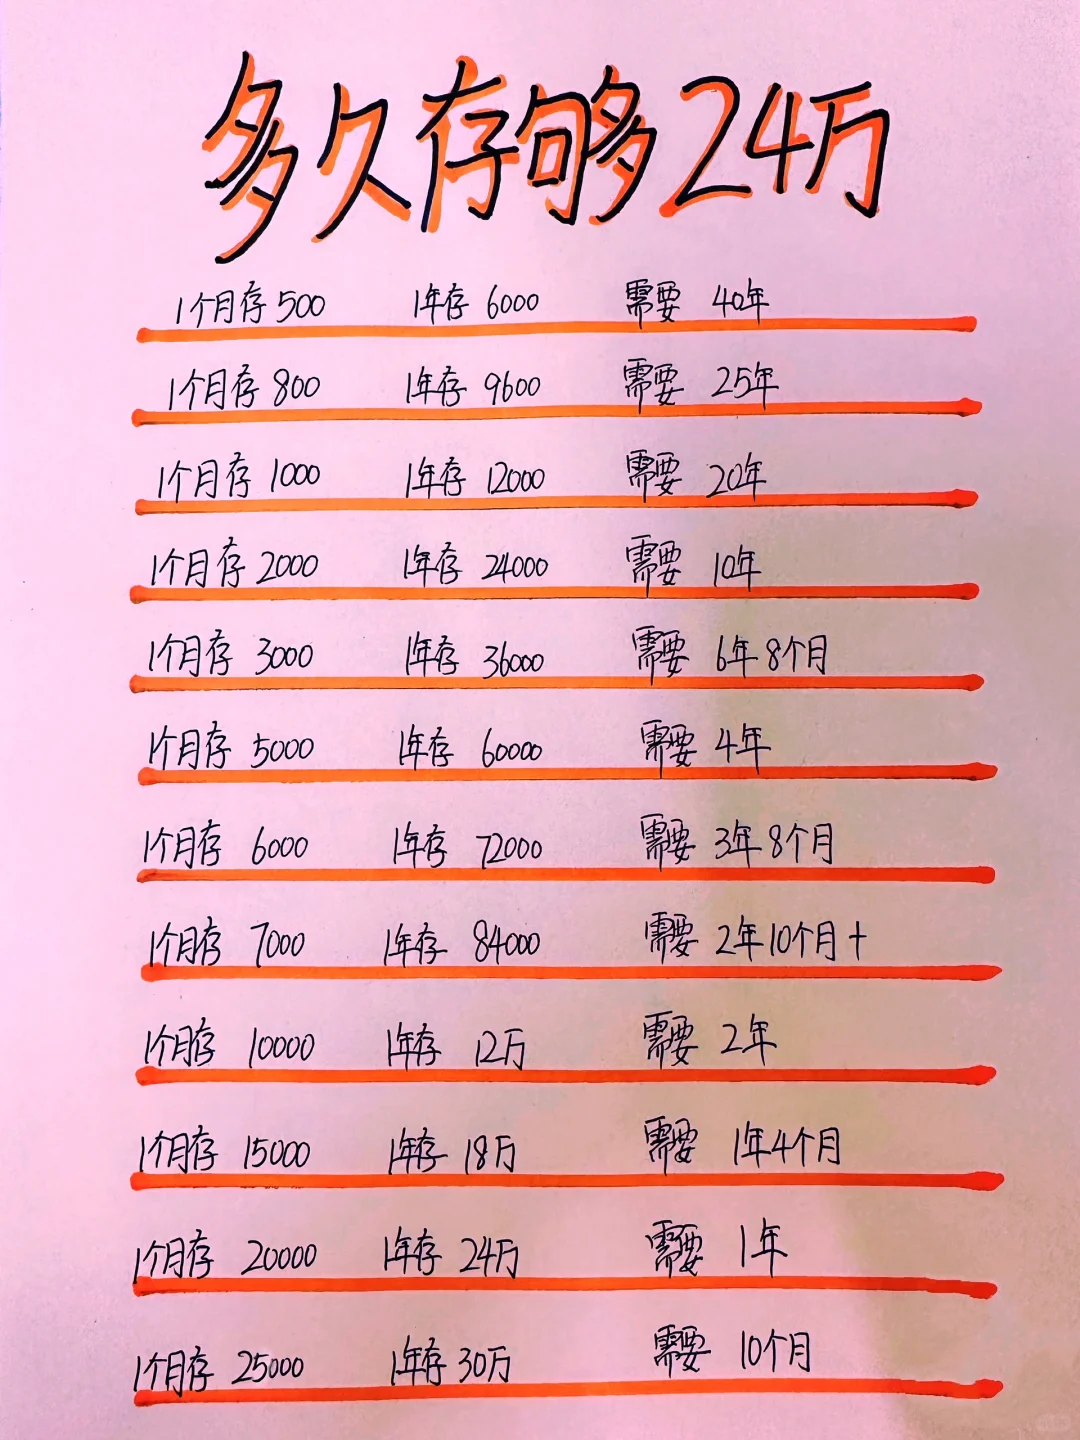 多久存够24万
1个月存500 1年存6000 需要 40年
1个月存800 1年存9600 需要 25年
1个月存1000 1年存12000 需要 20年
1个月存2000 1年存24000 需要 10年
1个月存3000 1年存36000 需要 6年8个月
1个月存5000 1年存60000 需要 4年
1个月存6000 1年存72000 需要 3年8个月
1个月存7000 1年存84000 需要 2年10个月+
1个月存10000 1年存12万 需要 2年
1个月存15000 1年存18万 需要 1年4个月
1个月存20000 1年存24万 需要 1年
1个月存25000 1年存30万 需要 10个月